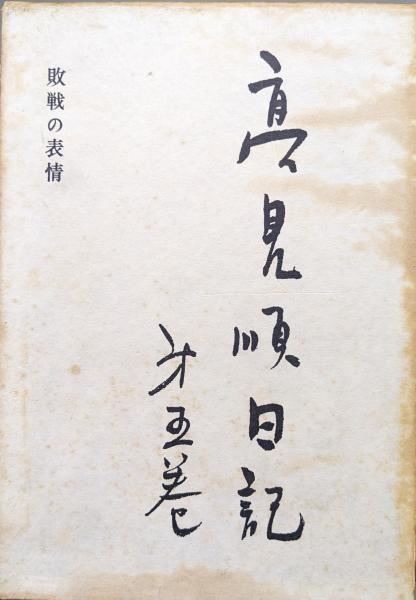 高見順日記
第五巻
敗戦の表情